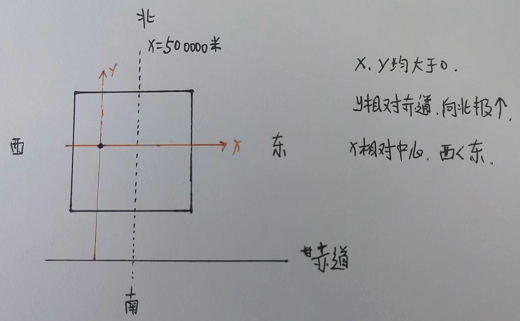 北
X=500000米
Y
西
X
东
赤道
南
X、Y均大于0.
y相对赤道,向北极↑.
X相对中心,西<东.